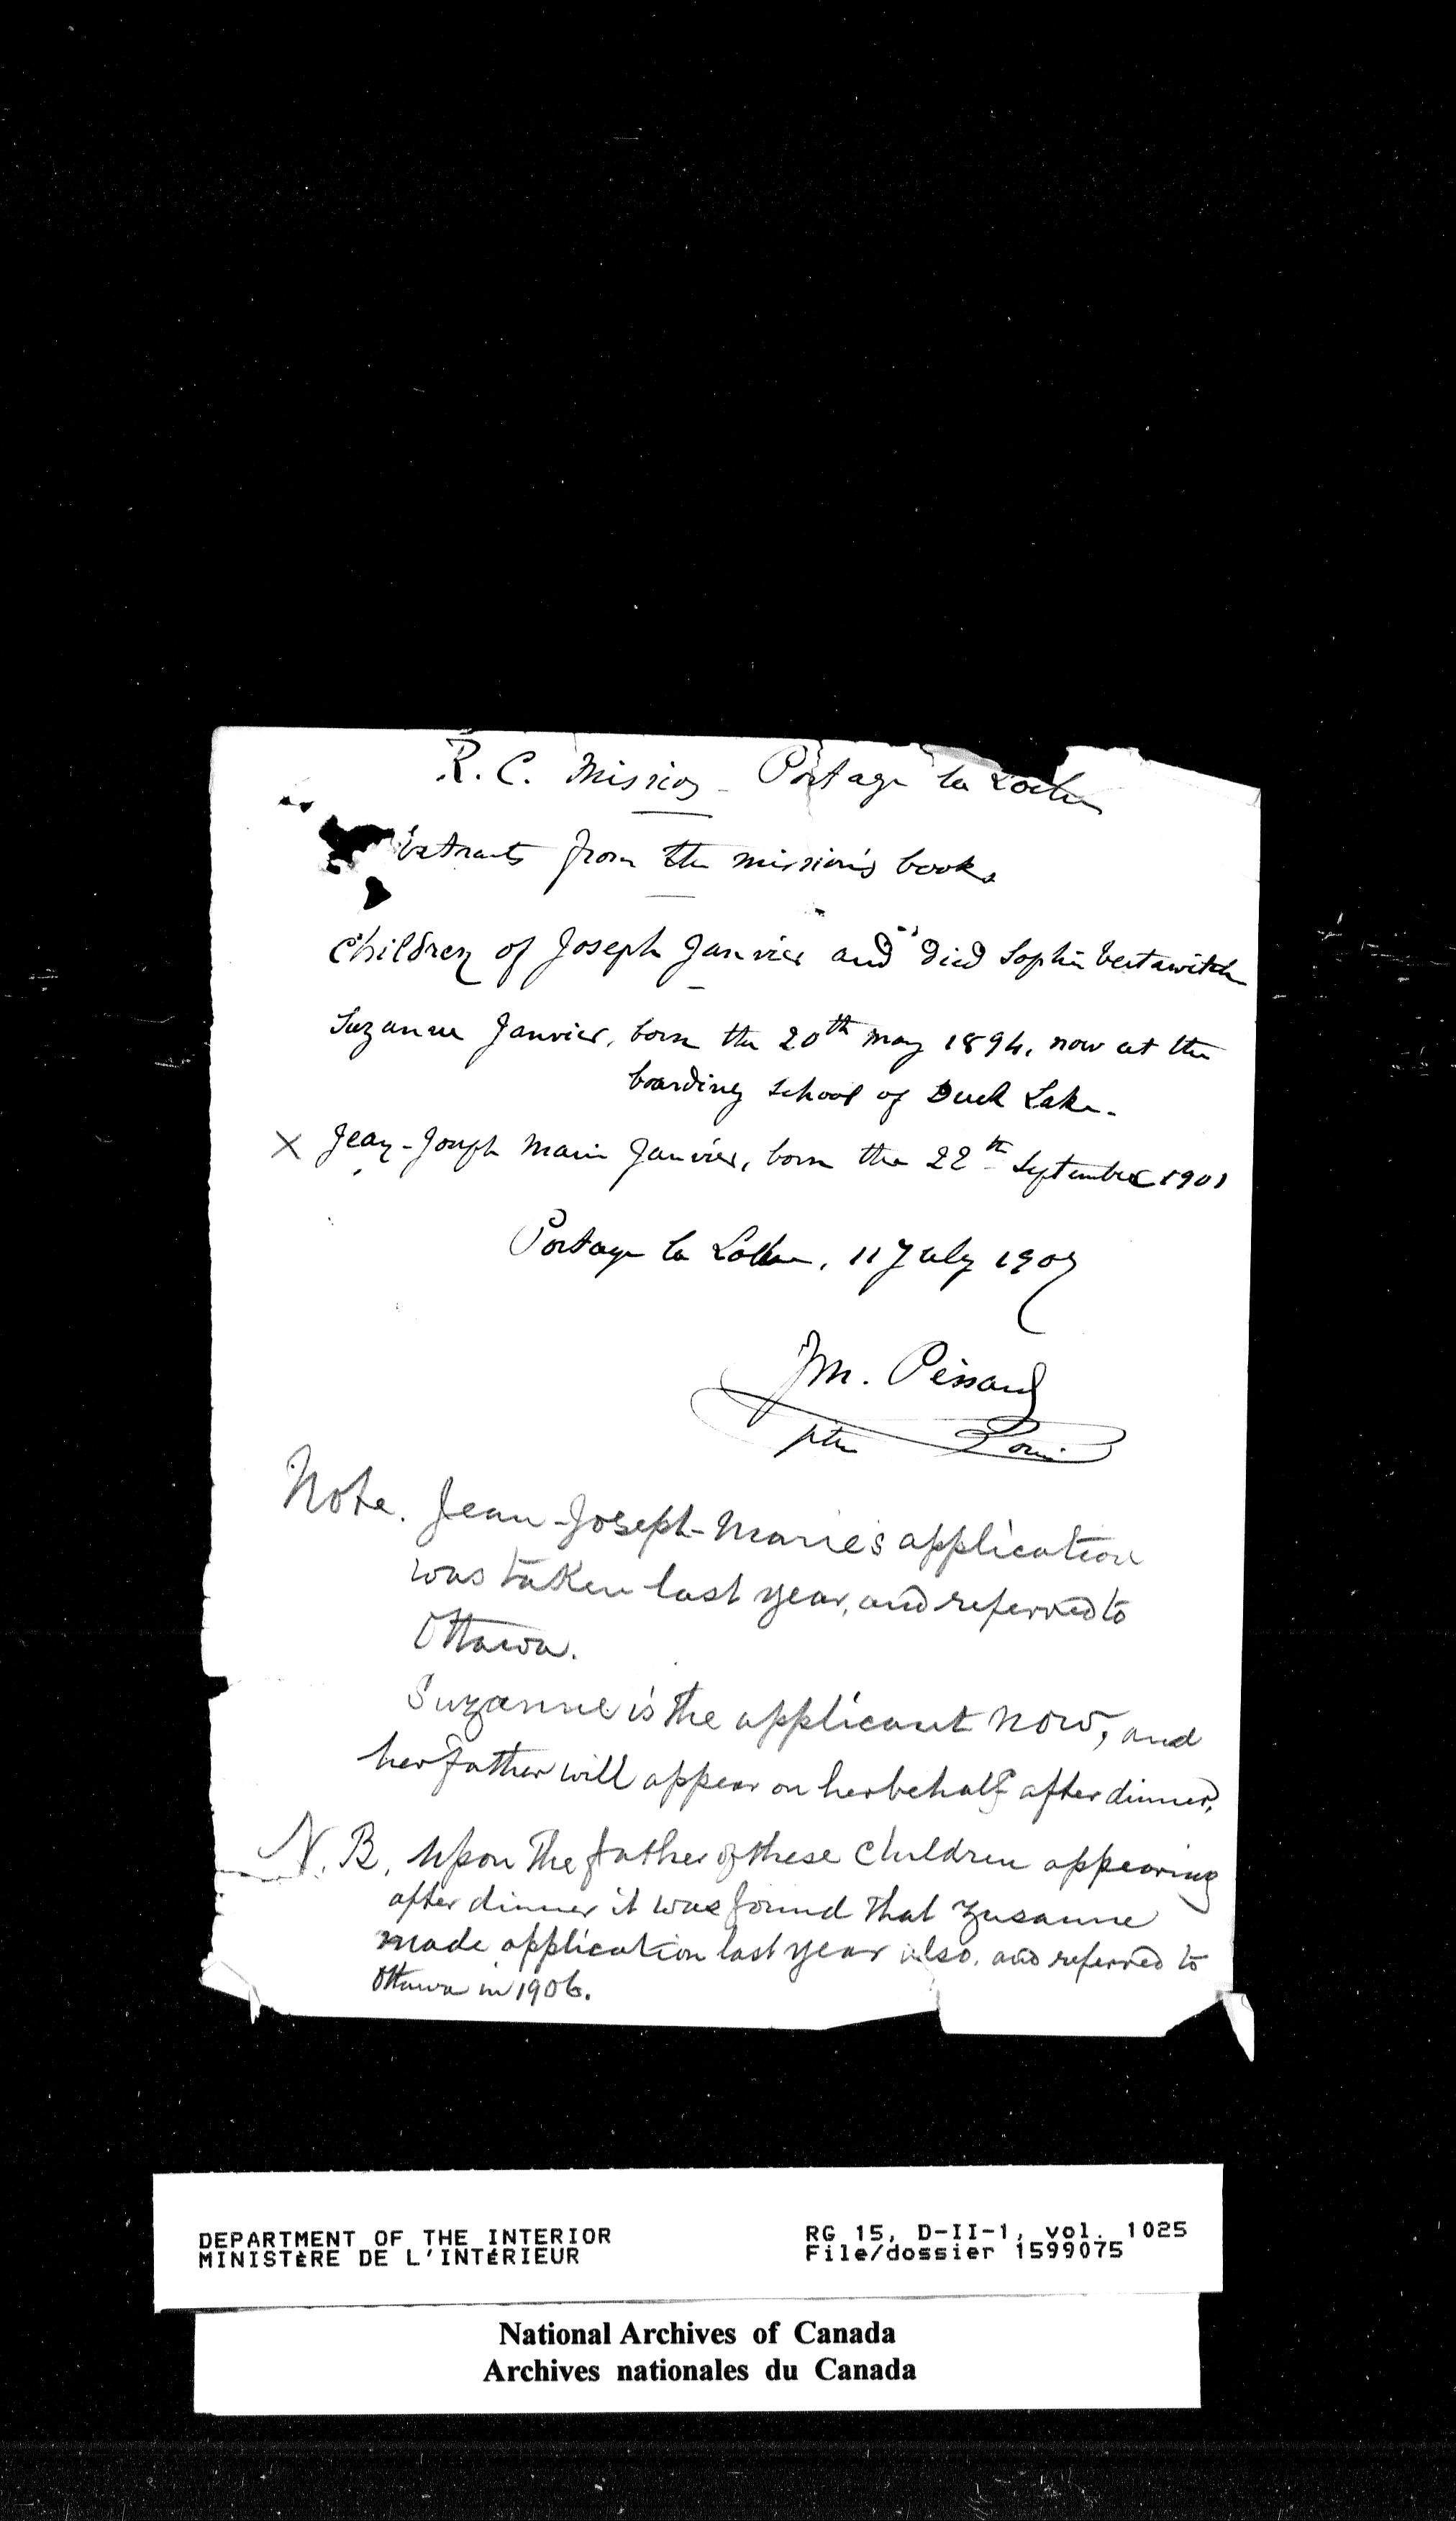 R. C. Mission - Portage la Loche
Extracts from the mission's books
Children of Joseph Janvier and died Sophie
Suzanne Janvier, born the 20th may 1894, now at the
boarding school of Duck Lake.
X Jean-Joseph Marie Janvier, born the 22th September 1901
Portage la Loche, 11 July 1907
JM. Pénard
ptre
Note. Jean-Joseph-Marie's application
was taken last year, and referred to
Ottawa.
Suzanne is the applicant now, and
her father will appear on her behalf after dinner.
N.B. Upon the father of these children appearing
after dinner it was found that Zusanne
made application last year also. and referred to
Ottawa in 1906.
DEPARTMENT OF THE INTERIOR
MINISTÈRE DE L'INTÉRIEUR
RG 15, D-II-1, vol. 1025
File/dossier 1599075
National Archives of Canada
Archives nationales du Canada